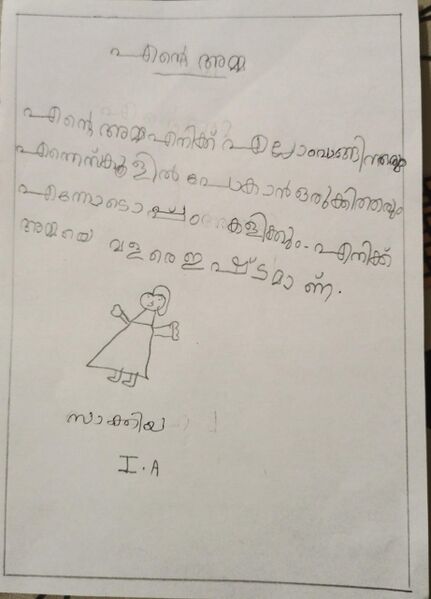 എന്റെ അമ്മ
എന്റെ അമ്മ എനിക്ക് എല്ലാം വാങ്ങിത്തരും
എന്നെ സ്കൂളിൽ പോകാൻ ഒരുക്കിത്തരും
എന്നോടൊപ്പം കളിക്കും. എനിക്ക്
അമ്മയെ വളരെ ഇഷ്ടമാണ്.
സാക്തിയ
I.A